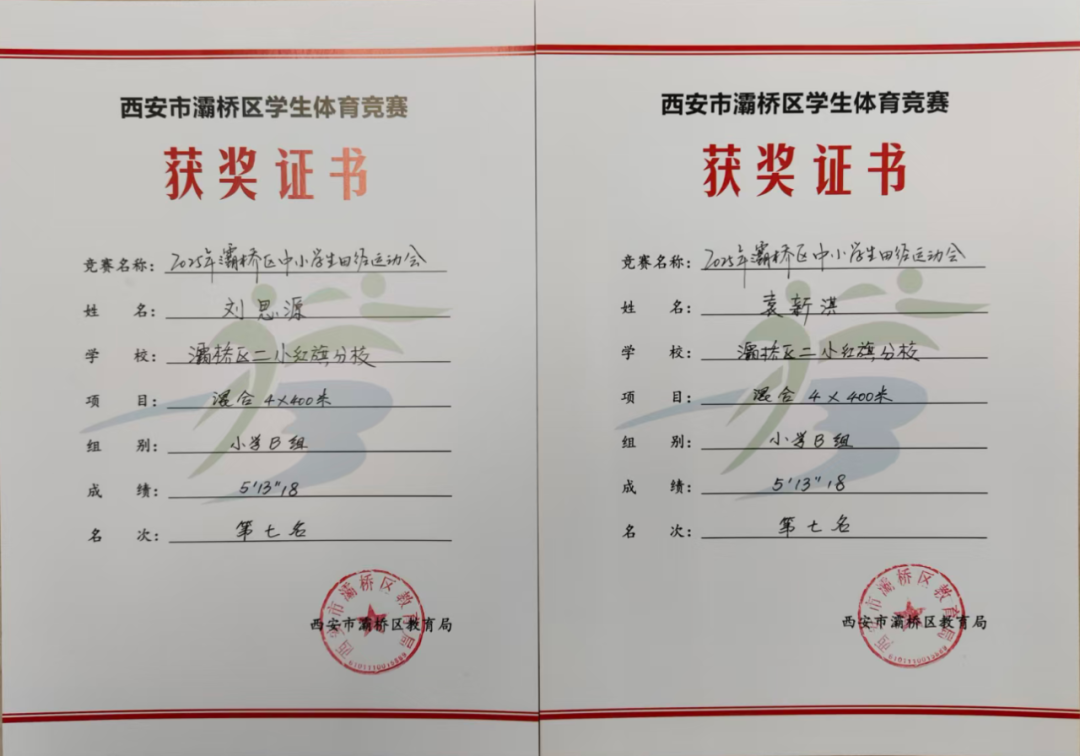 西安市灞桥区学生体育竞赛
获奖证书
竞赛名称: 2025年灞桥区中小学生田径运动会
姓 名: 刘思源
学 校: 灞桥区二小红旗分校
项 目: 混合 4×400米
组 别: 小学B组
成 绩: 5'13"18
名 次: 第七名
西安市灞桥区教育局
西安市灞桥区教育局
西安市灞桥区学生体育竞赛
获奖证书
竞赛名称: 2025年灞桥区中小学生田径运动会
姓 名: 袁新淇
学 校: 灞桥区二小红旗分校
项 目: 混合 4×400米
组 别: 小学B组
成 绩: 5'13"18
名 次: 第七名
西安市灞桥区教育局
西安市灞桥区教育局